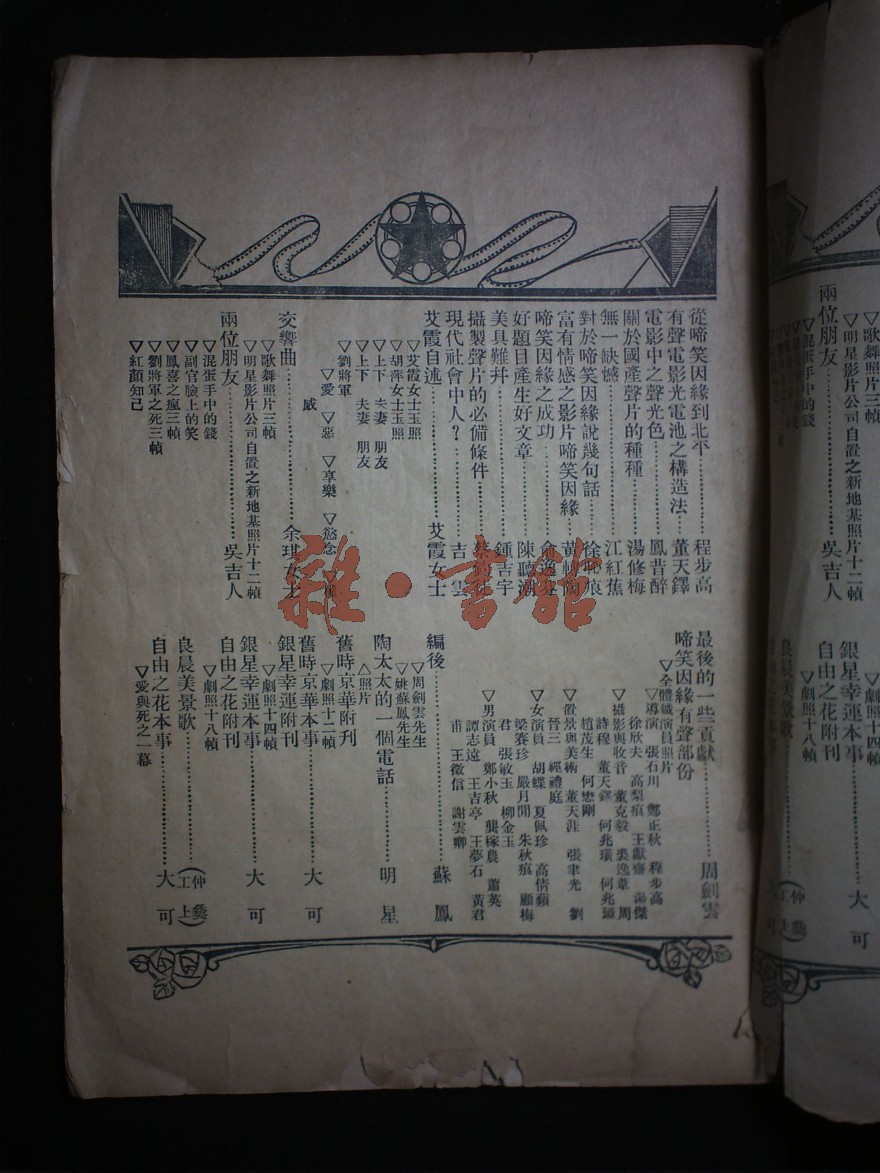 從啼笑因緣到北平………程步高
有聲電影光電池之構造法……董天鐸
電影中之聲光色………鳳昔醉
關於國產聲片的種種………湯修梅
無一缺憾………江紅蕉
對於啼笑因緣說幾句話………徐恥痕
富有情感之影片啼笑因緣………黃轉陶
啼笑因緣之成功………俞逸芬
好題目產生好文章………陳聽潮
美具難幷………鍾吉宇
攝製聲片的必備條件………
現代社會中人？………吉雲
艾霞自述………艾霞女士
▽艾霞女士玉照
▽胡萍女士玉照
▽上下 夫妻 朋友
▽上下 夫妻 朋友
▽劉將軍
▽愛 ▽惡 ▽享樂 ▽慾念
威
交響曲………余琪女士
▽歌舞照片三幀
▽明星影片公司自置之新地基照片十二幀
兩位朋友………吳吉人
▽混蛋手中的錢
▽副官臉上的笑
▽鳳喜之瘋三幀
▽劉將軍之死三幀
▽紅顏知己
最後的一些貢獻………周劍雲
啼笑因緣有聲部份
▽全體職演員照片
▽導演 張石川 鄭正秋 程步高
徐欣夫 高梨痕 王獻齋 湯傑
▽攝影與收音 董克毅 裘逸葦 周
詩程 董天鐸 何兆璜 何兆璋
趙茂生 何懋剛
▽置景與美術 董天涯 張聿光 劉
晉三 經禮庭
▽女演員 胡蝶 夏佩珍 高倩蘋
梁賽珍 嚴月閒 朱秋痕 顧梅
君 張敏玉 柳金玉
▽男演員 鄭小秋 龔稼農 蕭英
譚志遠 王吉亭 王夢石 黃君
甫 王徵信 謝雲卿
編後………蘇鳳
▽周劍雲先生
▽姚蘇鳳先生
陶太太的一個電話………明星
△照片
舊時京華附刊
▽劇照十二幀
舊時京華本事………大可
銀星幸運附刊
▽劇照十四幀
銀星幸運本事………大可
自由之花附刊
▽劇照十八幀
良晨美景歌………(仲彝 工上)
自由之花本事………大可
▽愛與死之一幕
雜·書館
兩位朋友………吳吉人
▽歌舞照片三幀
▽明星影片公司自置之新地基照片十二幀
▽混蛋手中的錢
銀星幸運本事………大可
自由之花附刊
▽劇照十八幀
良晨美景歌